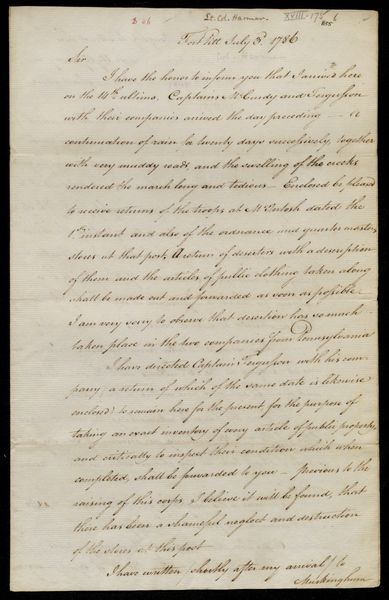 Lt. Col. Harmar.
Fort Pitt July 5th. 1786
Sir
I have the honor to inform you that I arrived here
on the 14th ultimo. Captains McCurdy and Fergusson
with their companies arrived the day preceding — a
continuation of rain for twenty days successively, together
with very muddy roads, and the swelling of the creeks
rendered the march long and tedious — Enclosed be pleased
to receive returns of the troops at McIntosh dated the
1st instant and also of the ordnance and quarter masters
stores at that post. A return of deserters with a description
of them and the articles of public clothing taken along
shall be made out and forwarded as soon as possible
I am very sorry to observe that desertion has so much
taken place in the two companies from Pennsylvania
I have directed Captain Fergusson with his com-
pany (a return of which of the same date is likewise
enclosed) to remain here for the present for the purpose of
taking an exact inventory of every article of public property,
and critically to inspect their condition which when
completed, shall be forwarded to you — Previous to the
raising of this corps I believe it will be found, that
there has been a shameful neglect and destruction
of the stores at this post
I have written (shortly after my arrival) to
Muskinghum